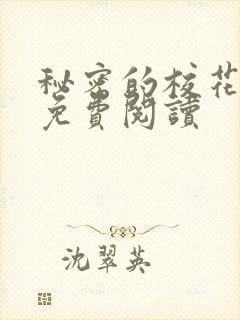 秘密的校花
免費閱讀
沈翠英